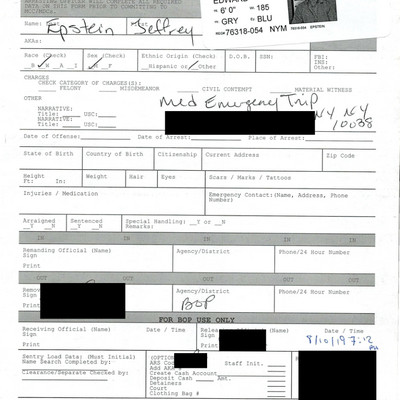 ARRESTING OFFICER WILL COMPLETE ALL REQUIRED
DATA ON THIS FORM PRIOR TO COMMITTING TO
MCC/MDCs.
EDWARD
6' 0" = 185
GRY BLU
REG#76318-054 NYM
76318-054 EPSTEIN
Name: Last First
Epstein Jeffrey
AKAs:
Race (Check) Sex (Check) Ethnic Origin (Check) D.O.B. SSN: FBI:
B W A I M F Hispanic or Other INS:
Other:
CHARGES
CHECK CATEGORY OF CHARGES(S):
FELONY MISDEMEANOR CIVIL CONTEMPT MATERIAL WITNESS
OTHER
Med Emergency Trip
NARRATIVE:
Title: USC:
NARRATIVE:
Title: USC:
NY NY
10038
Date of Offense: Date of Arrest: Place of Arrest:
State of Birth Country of Birth Citizenship Current Address Zip Code
Height Weight Hair Eyes Scars / Marks / Tattoos
Ft: In:
Injuries / Medication Emergency Contact: (Name, Address, Phone
Number)
Arraigned Sentenced Special Handling: Y or N
Y N Y N Remarks:
IN IN IN IN IN
Remanding Official (Name) Agency/District Phone/24 Hour Number
Sign
Print
OUT OUT OUT OUT OUT
Remov Agency/District Phone/24 Hour Number
Sign
Print
BOP
FOR BOP USE ONLY
Receiving Official (Name) Date / Time Relea Date / Time
Sign Sign
Print Print
8/10/19 7:12
Sentry Load Data: (Must Initial)
Name Search Completed by:
Clearance/Separatee Checked by:
(OPTION
ARS Cod Staff Init.
Add AKA
Create Cash Account
Deposit Cash Amt.
Detainers
Court
Clothing Bag #